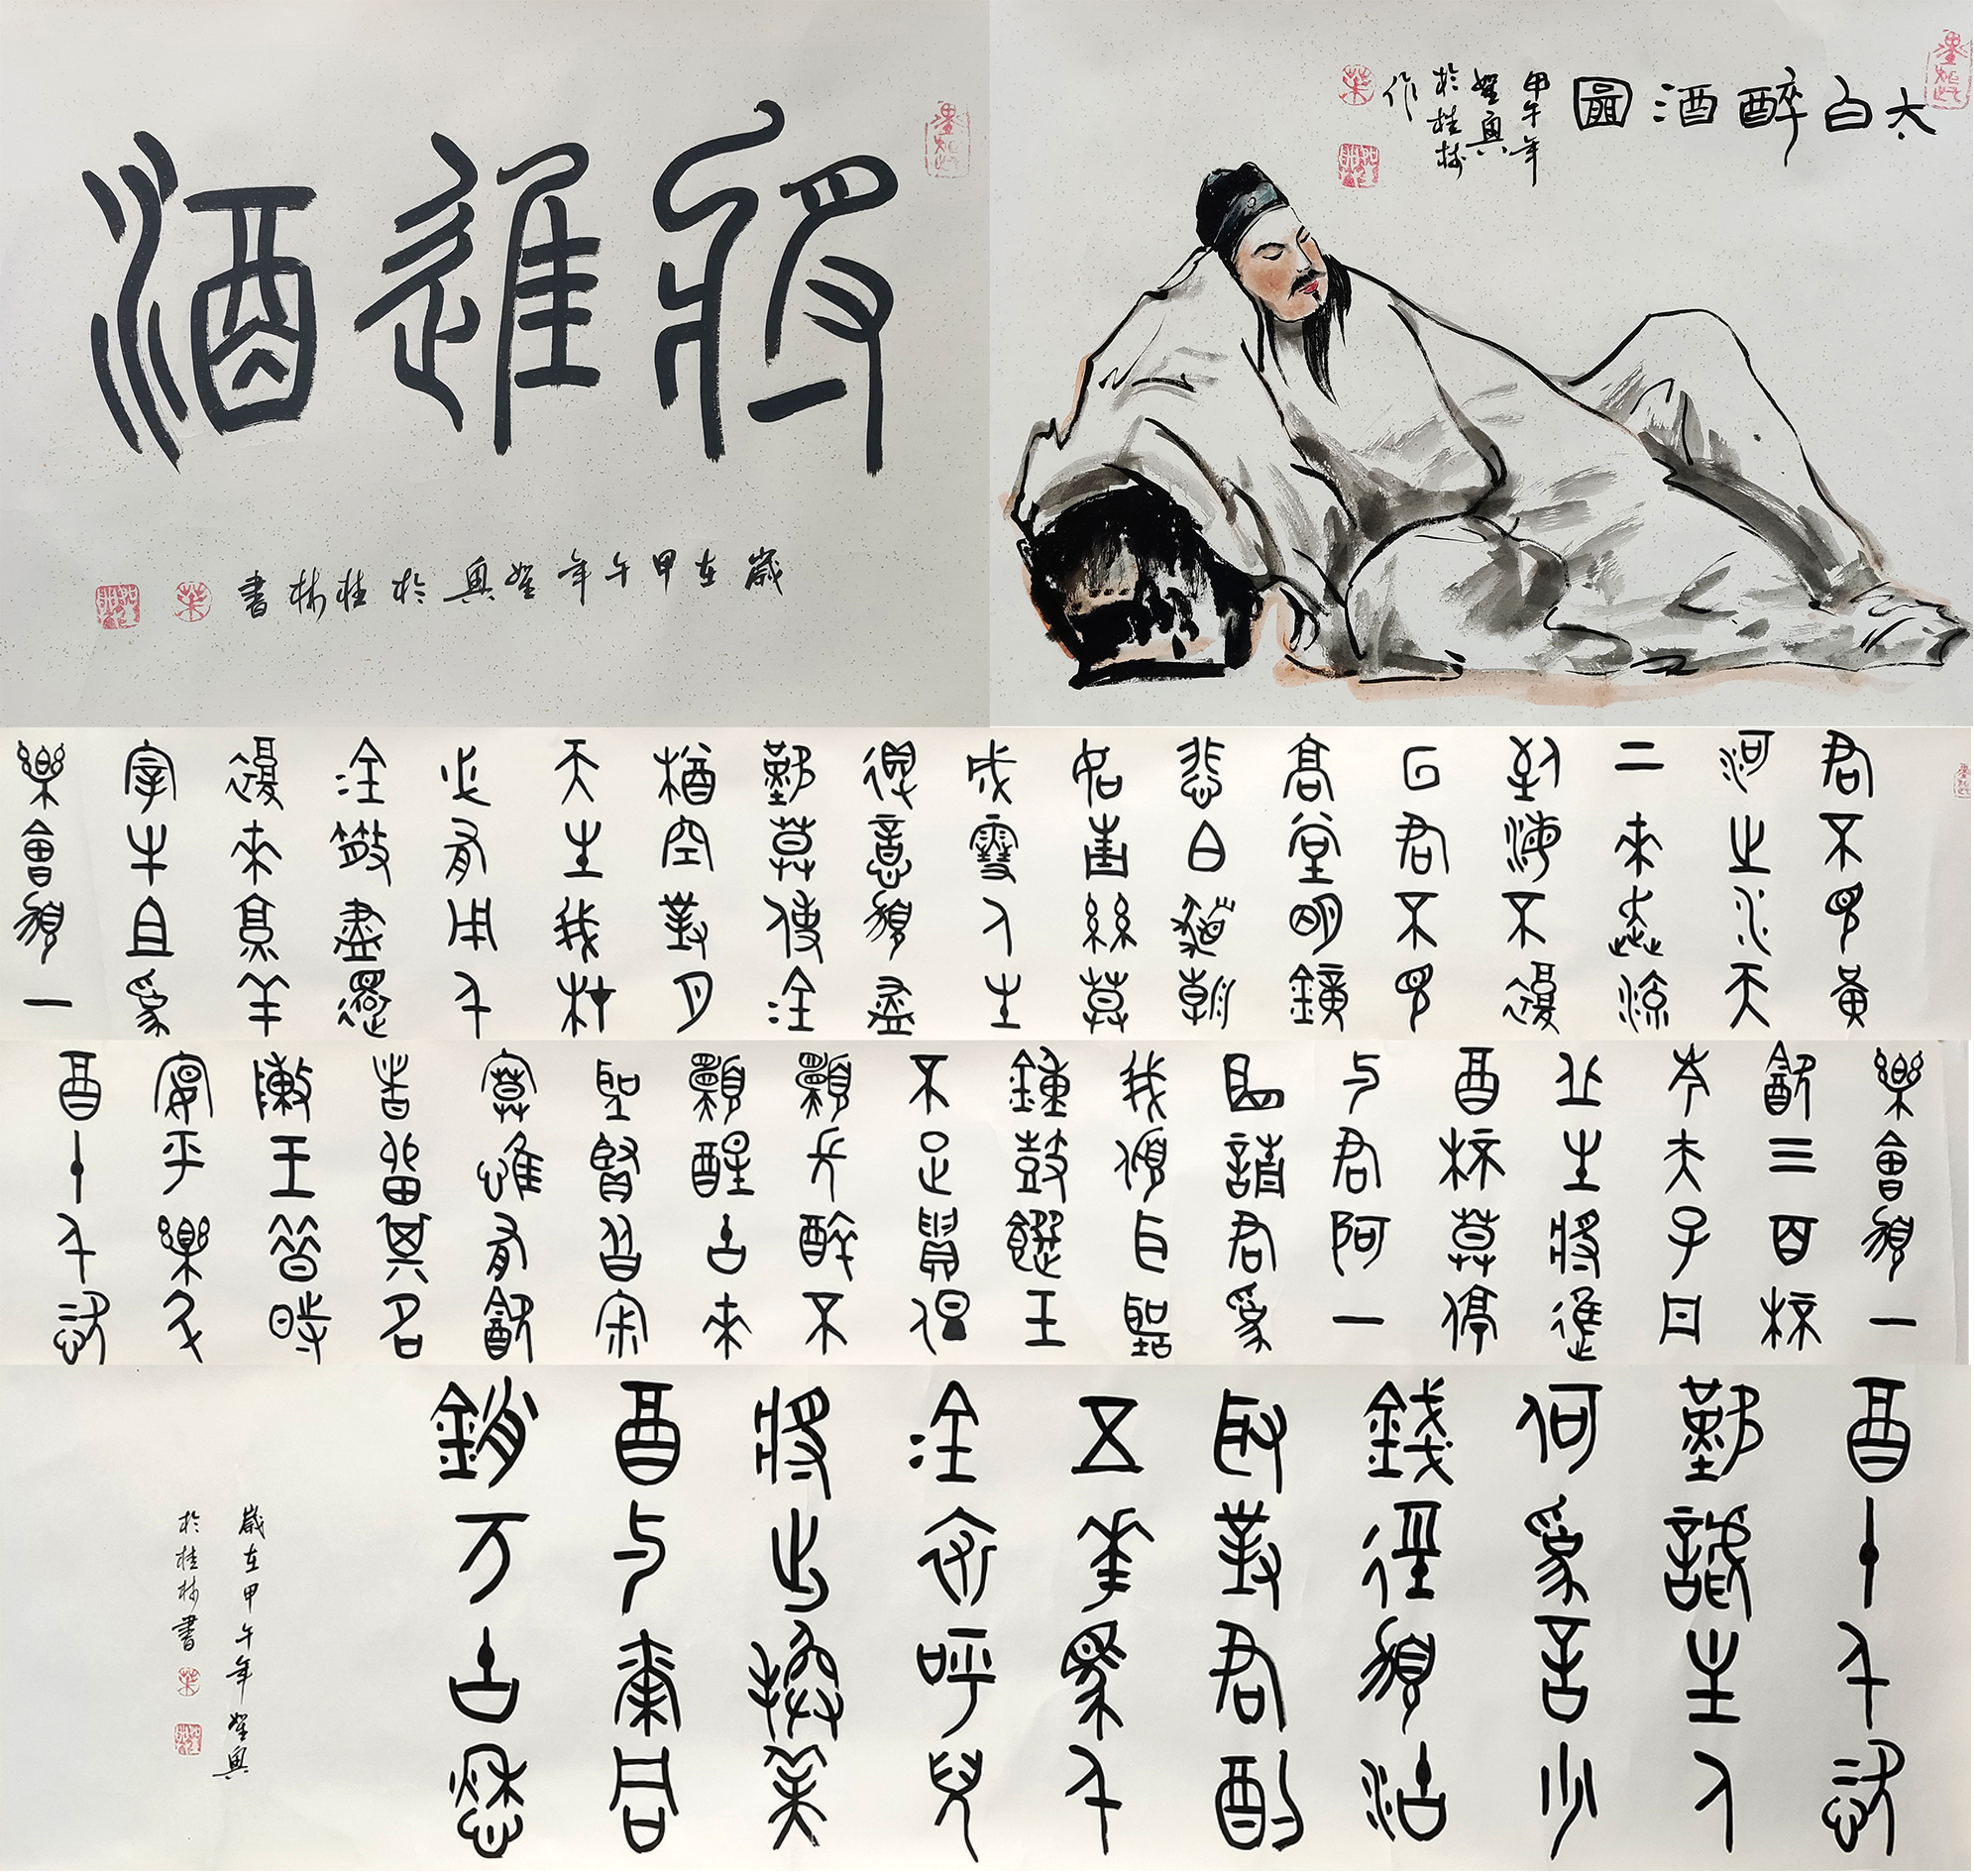 將進酒
歲在甲午年奥於桂林書
太白醉酒圖
甲午年
奥
於桂林
作
君不見黃
河之水天
上來奔流
到海不復
回君不見
高堂明鏡
悲白髮朝
如青絲莫
成雪人生
得意須盡
歡莫使金
樽空對月
天生我材
必有用千
金散盡還
復來烹羊
宰牛且為
樂會須一
樂會須一
飲三百杯
岑夫子丹
丘生將進
酒杯莫停
与君歌一
曲請君為
我傾耳聽
鐘鼓饌玉
不足貴但
願長醉不
願醒古來
聖賢皆寂
寞惟有飲
者留其名
陳王昔時
宴平樂斗
酒十千恣
酒十千恣
歡謔主人
何為言少
錢徑須沽
取對君酌
五花馬千
金裘呼兒
將出換美
酒与爾同
銷万古愁
歲在甲午年奥
於桂林書